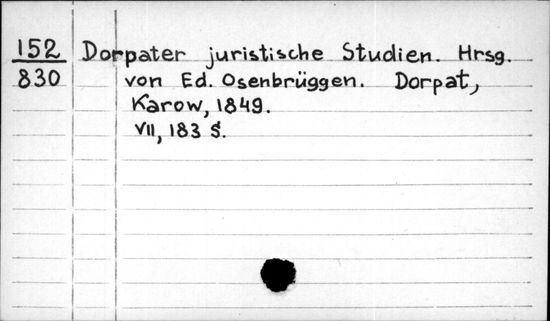 152 Dorpater juristische Studien. Hrsg.
830 von Ed. Osenbrüggen. Dorpat,
Karow, 1849.
VII, 183 S.